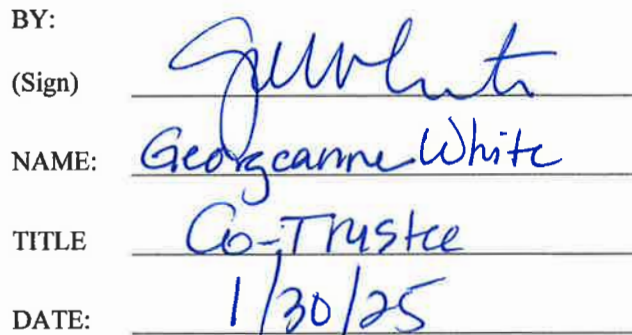 BY:
(Sign)
NAME: Georgeanne White
TITLE Co-Trustee
DATE: 1/30/25